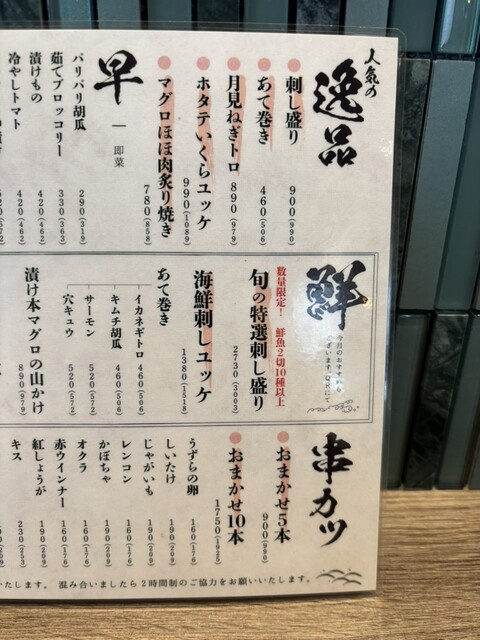 人気の
逸品
刺し盛り 900(990)
あて巻き 460(506)
月見ねぎトロ 890(979)
ホタテいくらユッケ 990(1089)
マグロほほ肉炙り焼き 780(858)
早
一 即菜
パリパリ胡瓜 290(319)
茹でブロッコリー 330(363)
漬けもの 420(462)
冷やしトマト 420(462)
鮮
今月のおすすめも
ございます。QRにて
数量限定! 鮮魚2切10種以上
旬の特選刺し盛り 2730(3003)
海鮮刺しユッケ 1380(1518)
あて巻き
イカネギトロ 460(506)
キムチ胡瓜 460(506)
サーモン 520(572)
穴キュウ 520(572)
漬け本マグロの山かけ 890(979)
串カツ
おまかせ5本 900(990)
おまかせ10本 1750(1925)
うずらの卵 160(176)
しいたけ 190(209)
じゃがいも 190(209)
レンコン 190(209)
かぼちゃ 160(176)
オクラ 160(176)
赤ウインナー 160(176)
紅しょうが 190(209)
キス 230(253)
いたします。 混み合いましたら2時間制のご協力をお願いいたします。